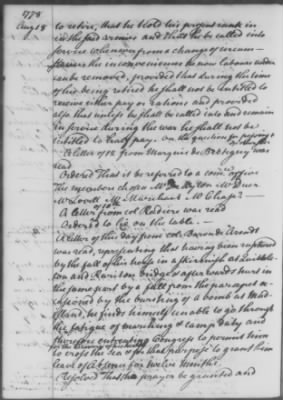 1778
Aug 18
to retire, that he hold his present rank in
in the said armies and that he be called into
service whenever from a change of circum-
stances the inconveniences he now labours under
can be removed, provided that during the time
of his being retired he shall not be entitled to
receive either pay or rations and provided
also that unless he shall be called into and remain
in service during the war he shall not be
entitled to half pay. On the question for
A letter of 12 from Marquis de Bretigney was
read
Ordered That it be referred to a com. of five
The members chosen Mr Dayton Mr Duer
Mr Lovell Mr Marchant Mr Chase
A letter of 10 from col Radiere was read
Ordered to lie on the table
A letter of this day from col. Baron de Arendt
was read, representing that having been ruptured
by the fall of his horse in a skirmish at Quibble-
ton and Rariton bridge & afterwards hurt in
the same part by a fall from the parapet oc-
casioned by the bursting of a bomb at Mud
Island, he finds himself unable to go through
the fatigue of marching & camp duty and
therefore entreating Congress to permit him
for the recovery of his health
to cross the sea & for that purpose to grant him
leave of absence for twelve months.
Resolved That his prayer be granted and